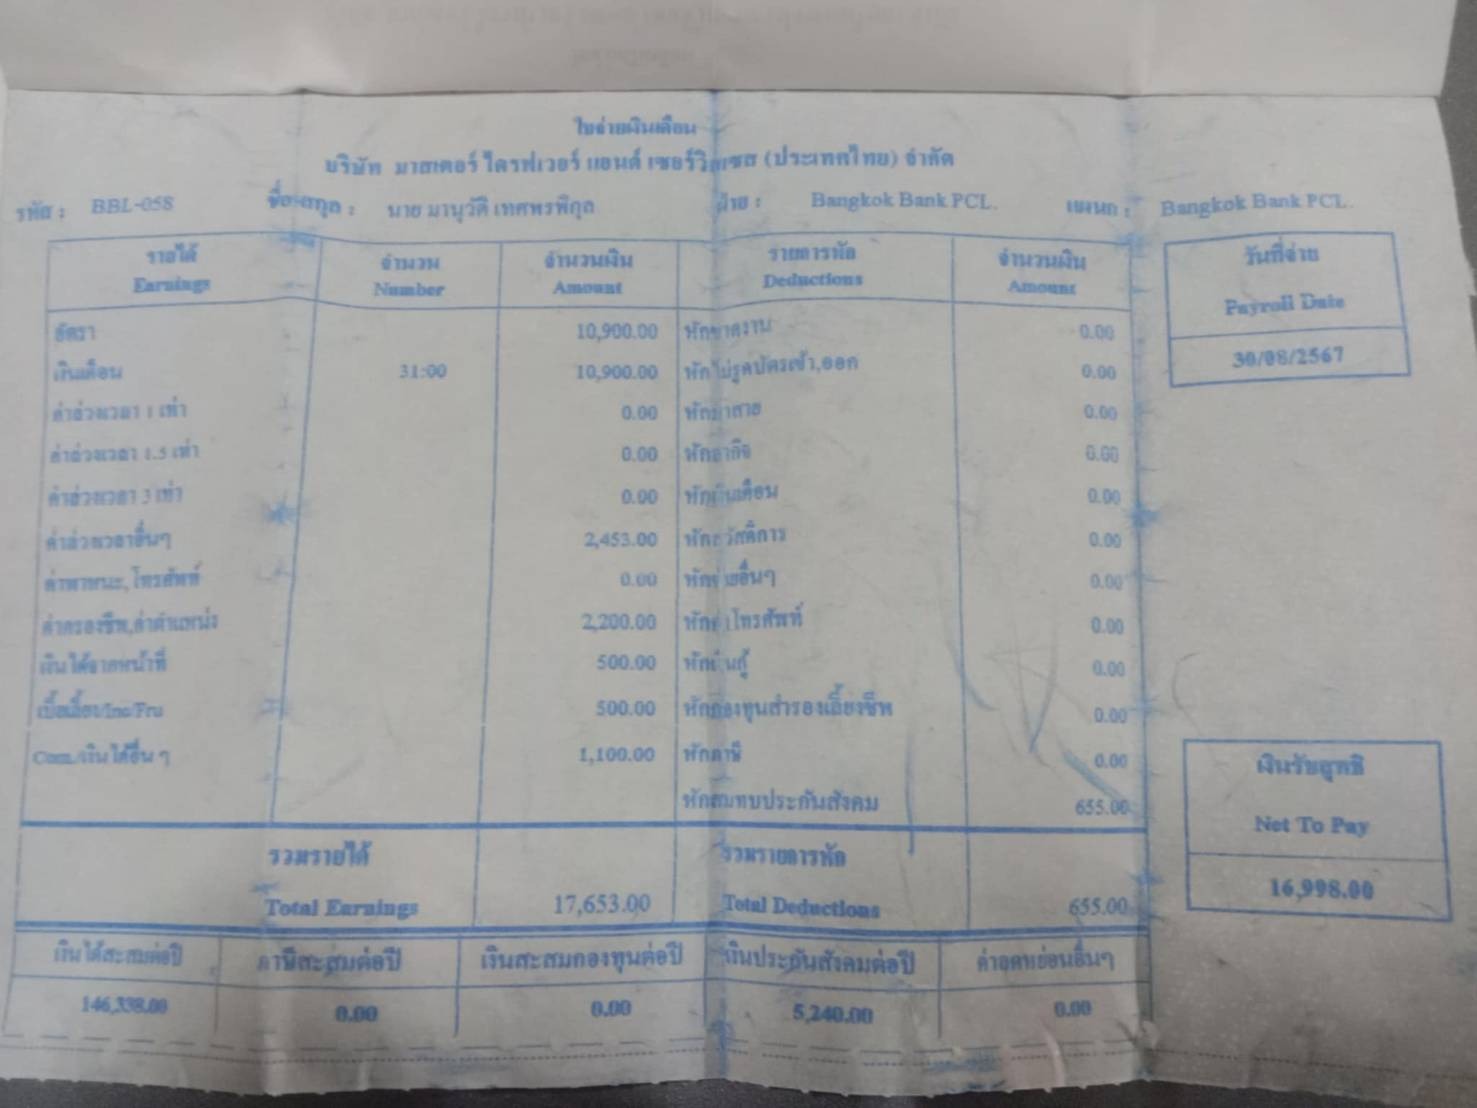 ใบจ่ายเงินเดือน
บริษัท มาสเตอร์ ไดรฟ์เวอร์ แอนด์ เซอร์วิสเซส (ประเทศไทย) จำกัด
รหัส : BBL-058 ชื่อ-สกุล : นาย มานุวัติ เทศพรพิกุล ฝ่าย : Bangkok Bank PCL. แผนก : Bangkok Bank PCL.
รายได้ จำนวน จำนวนเงิน รายการหัก จำนวนเงิน วันที่จ่าย
Earnings Number Amount Deductions Amount Payroll Date
อัตรา 10,900.00 หักขาดงาน 0.00 30/08/2567
เงินเดือน 31:00 10,900.00 หักไม่รูดบัตรเข้า,ออก 0.00
ค่าล่วงเวลา 1 เท่า 0.00 หักมาสาย 0.00
ค่าล่วงเวลา 1.5 เท่า 0.00 หักลากิจ 0.00
ค่าล่วงเวลา 3 เท่า 0.00 หักเงินเดือน 0.00
ค่าล่วงเวลาอื่นๆ 2,453.00 หักสวัสดิการ 0.00
ค่าพาหนะ, โทรศัพท์ 0.00 หักจ่ายอื่นๆ 0.00
ค่าครองชีพ,ค่าตำแหน่ง 2,200.00 หักค่าโทรศัพท์ 0.00
เงินได้จากหน้าที่ 500.00 หักเงินกู้ 0.00
เบี้ยเลี้ยง/Inc/Fru 500.00 หักกองทุนสำรองเลี้ยงชีพ 0.00
Com./เงินได้อื่น ๆ 1,100.00 หักภาษี 0.00
หักสมทบประกันสังคม 655.00
เงินรับสุทธิ
Net To Pay
16,998.00
รวมรายได้ รวมรายการหัก
Total Earnings 17,653.00 Total Deductions 655.00
เงินได้สะสมต่อปี ภาษีสะสมต่อปี เงินสะสมกองทุนต่อปี เงินประกันสังคมต่อปี ค่าลดหย่อนอื่นๆ
146,338.00 0.00 0.00 5,240.00 0.00